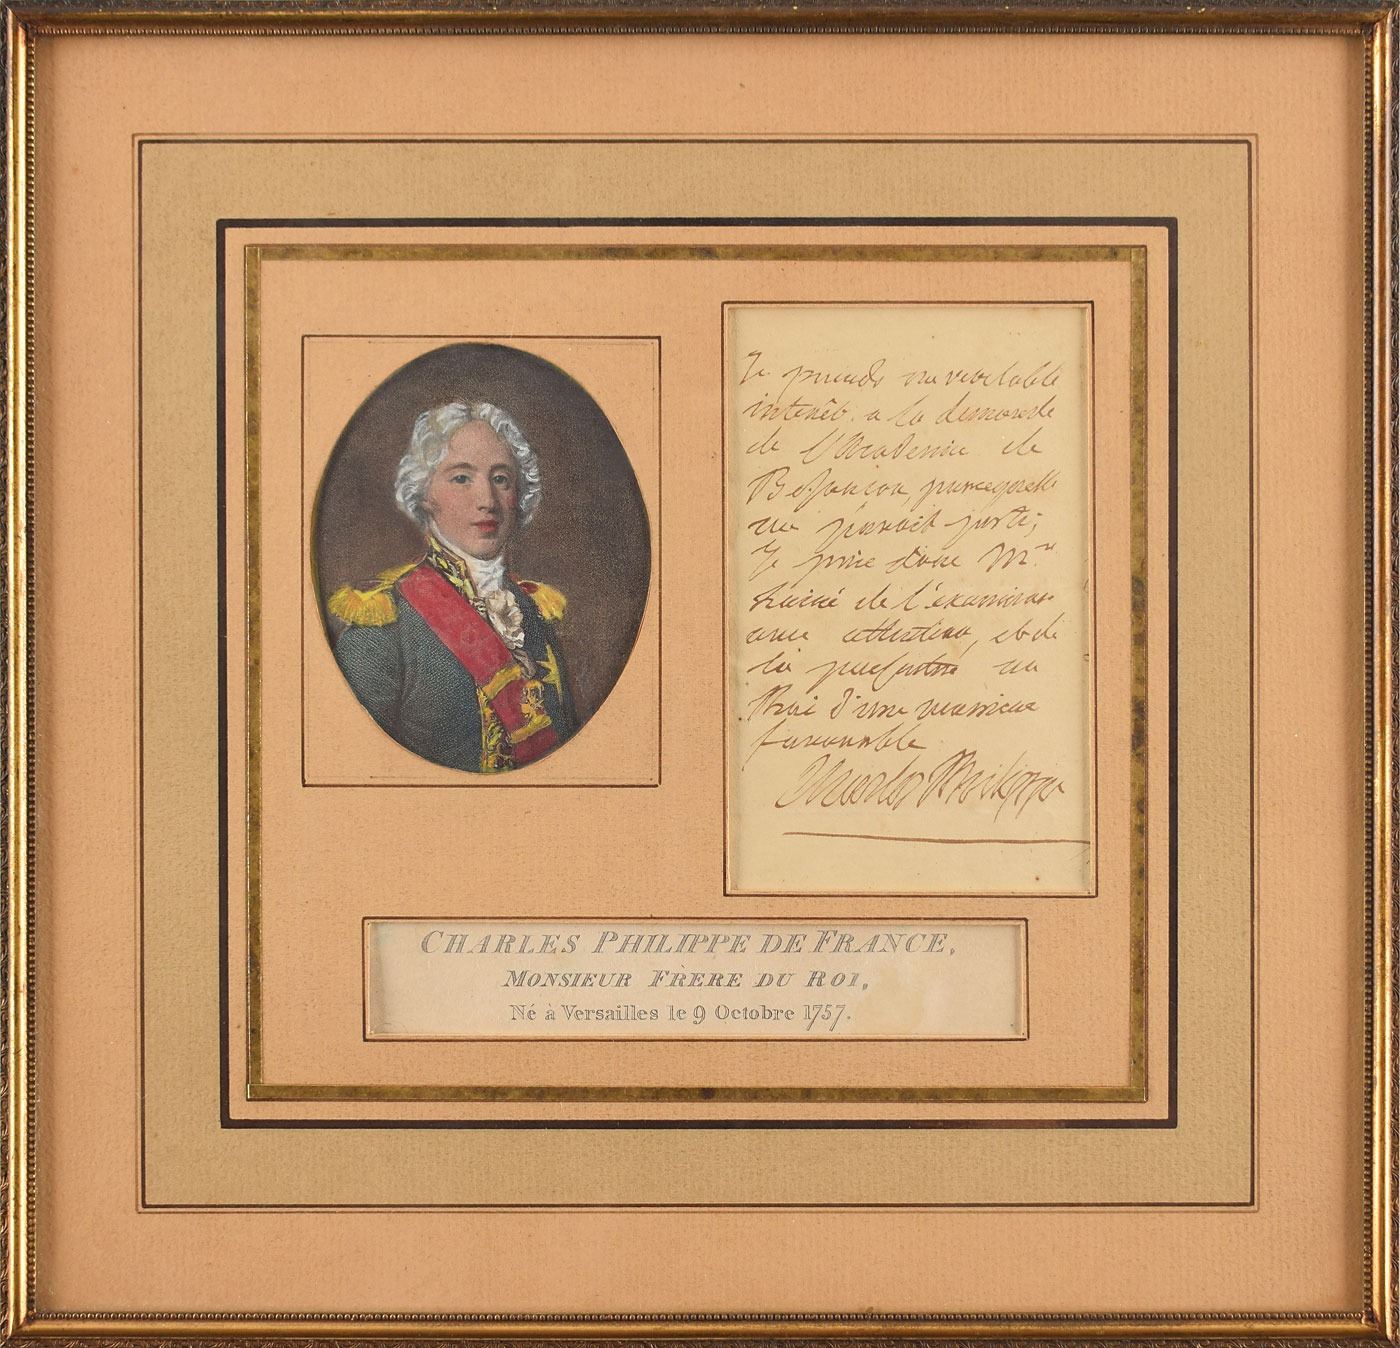 Je prends un véritable
intérêt a la demande
de l'Academie de
Besançon parcequ'elle
me paroit juste;
Je prie donc Mr.
de l'examiner
avec attention, et de
la presenter au
Roi d'une maniere
favorable
Charles Philippe
CHARLES PHILIPPE DE FRANCE,
MONSIEUR FRÈRE DU ROI,
Né à Versailles le 9 Octobre 1757.